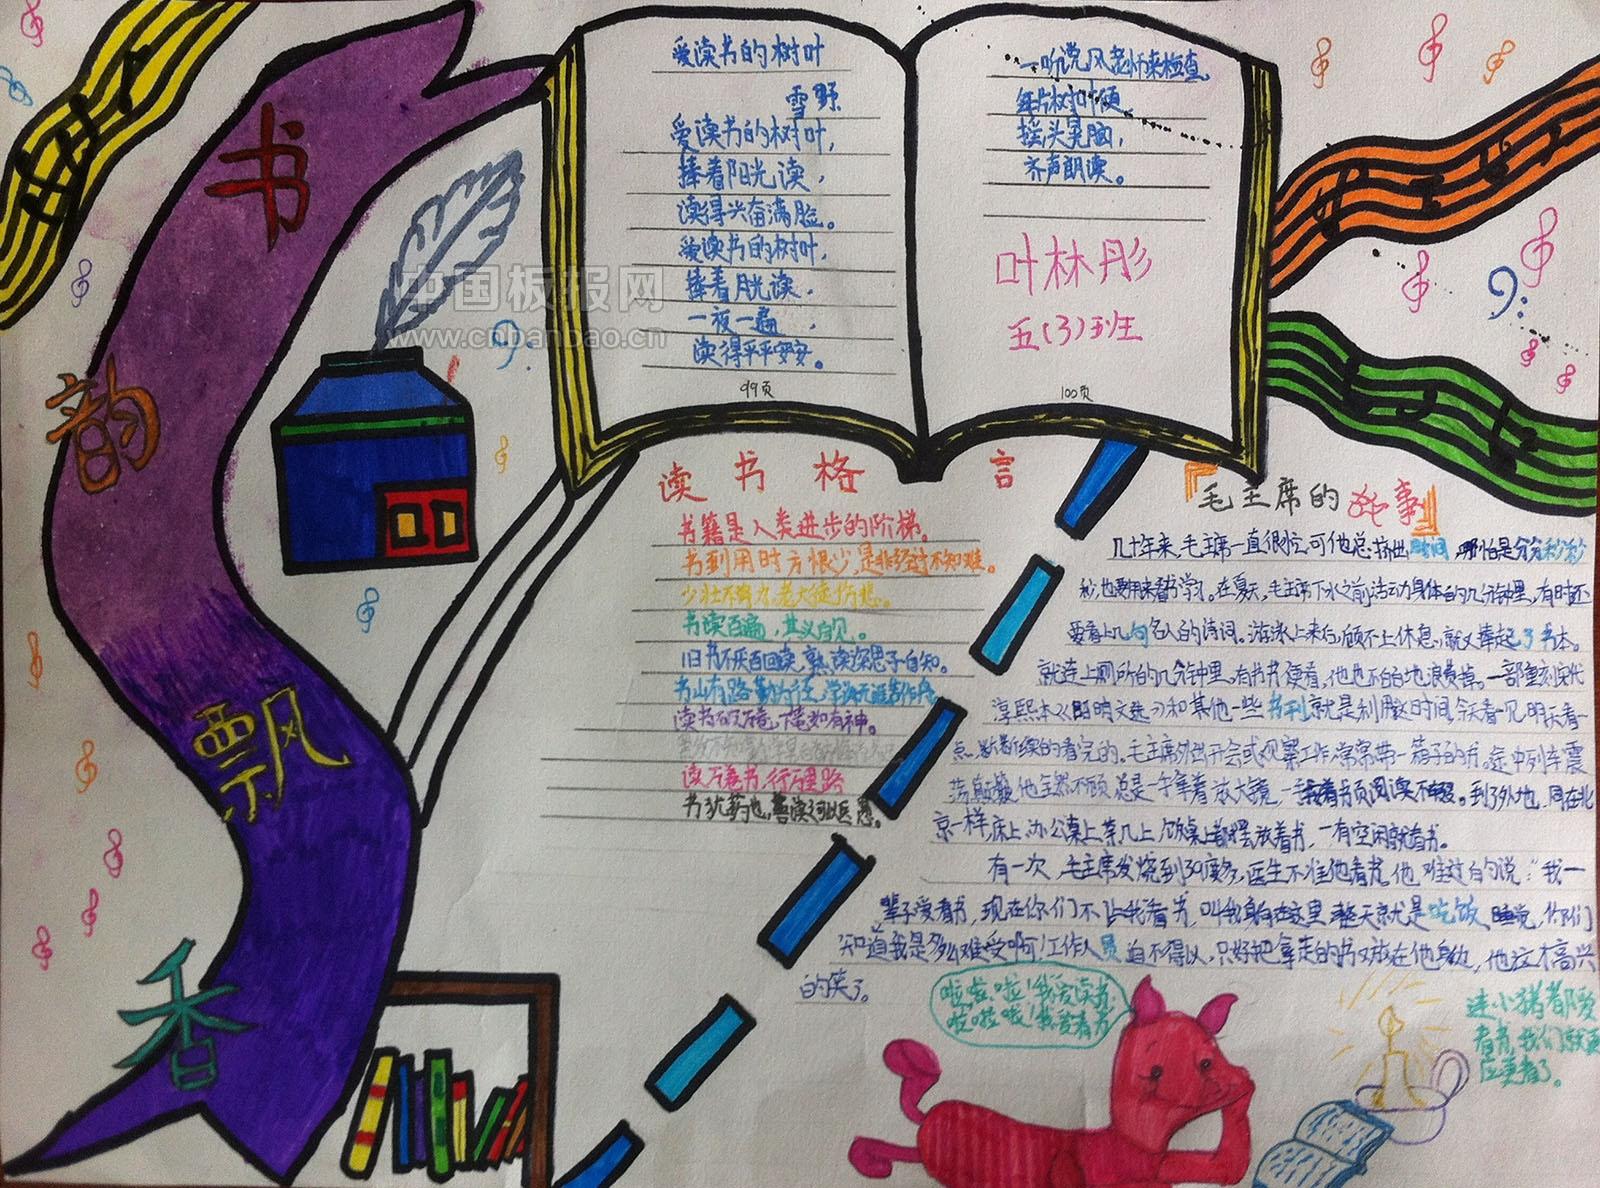 书
韵
飘
香
爱读书的树叶
雪野
爱读书的树叶，
捧着阳光读，
读得兴奋满脸。
爱读书的树叶，
捧着月光读，
一夜一遍，
读得平平安安。
99页
一听说风老师来检查
每片树叶便
摇头晃脑，
齐声朗读。
叶林彤
五(3)班
100页
中国板报网
www.cnbanbao.cn
读书格言
书籍是人类进步的阶梯。
书到用时方恨少，是非经过不知难。
少壮不努力，老大徒伤悲。
书读百遍，其义自见。
旧书不厌百回读，熟读深思子自知。
书山有路勤为径，学海无涯苦作舟
读书破万卷，下笔如有神。
读万卷书，行万里路
书犹药也，善读可以医愚。
毛主席的故事
几十年来，毛主席一直很忙，可他总挤出时间，哪怕是分分秒秒
秒，也要用来看书学习。在夏天，毛主席下水之前活动身体的几分钟里，有时还
要看上几句名人的诗词。游泳上来后，顾不上休息，就又捧起了书本。
就连上厕所的几分钟里，有书书便看，他也不白白地浪费掉。一部重刻宋代
淳熙本《昭明文选》和其他一些书刊就是利用这时间，今天看一见，明天看一
点，断断续续的看完的。毛主席外出开会或观察工作，常常带一箱子的书。途中列车震
荡颠簸，他全然不顾，总是一手拿着放大镜，一手按着书页，阅读不辍。到了外地，同在北
京一样，床上、办公桌上、茶几上、饭桌上都摆放着书，一有空闲就看书。
有一次，毛主席发烧到39度多，医生不准他看书。他难过的说：“我一
辈子爱看书，现在你们不让我看书，叫我躺在这里，整天就是吃饭、睡觉，你们
知道我是多么难受啊！工作人员迫不得以，只好把拿走的书又放在他身边，他这才高兴
的笑了。
啦啦，啦！我爱读书，
啦啦啦！我爱看书
连小猪都爱
看书，我们就更
应要看了。